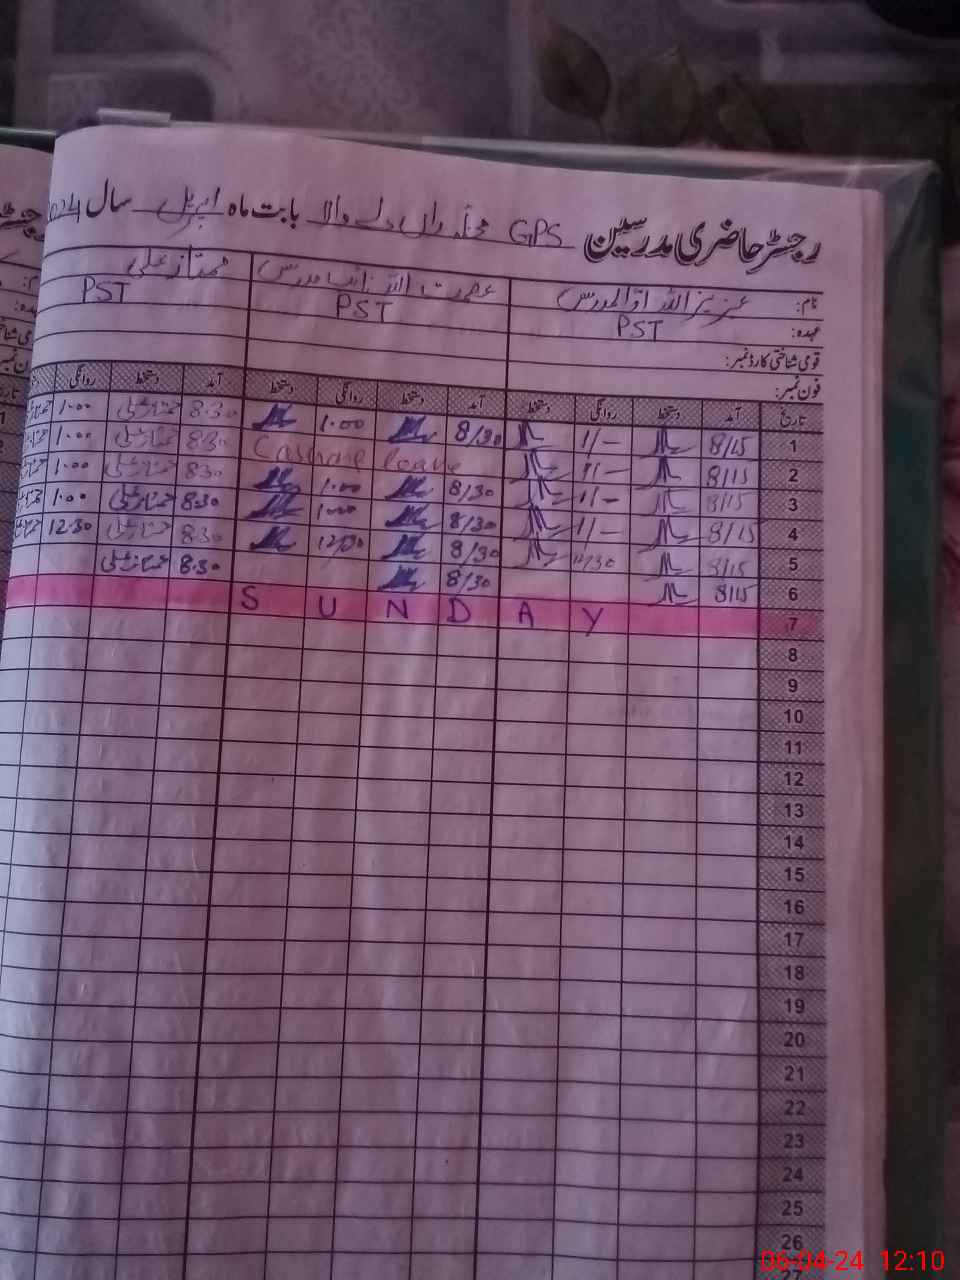 رجسٹر حاضری مدرسین GPS محلہ بابت ماہ اپریل سال 2024
نام: عزیز اللہ اول مدرس
عصمت اللہ نائب مدرس
ممتاز علی
عہدہ: PST PST PST
قومی شناختی کارڈ نمبر:
فون نمبر:
تاریخ آمد دستخط روانگی دستخط آمد دستخط روانگی دستخط آمد دستخط روانگی
1 8/15 1/- 8/30 1.00 8.30 1.00
2 8/15 1/- leave 8.30 1.00
3 8/15 1/- 8/30 1.00 8.30 1.00
4 8/15 1/- 8/30 1.00 8.30 1.00
5 8/15 12/30 8/30 12/30 8.30 12.30
6 8/15 8/30 8.30
7 S U N D A Y
8
9
10
11
12
13
14
15
16
17
18
19
20
21
22
23
24
25
26
27
06-04-24 12:10